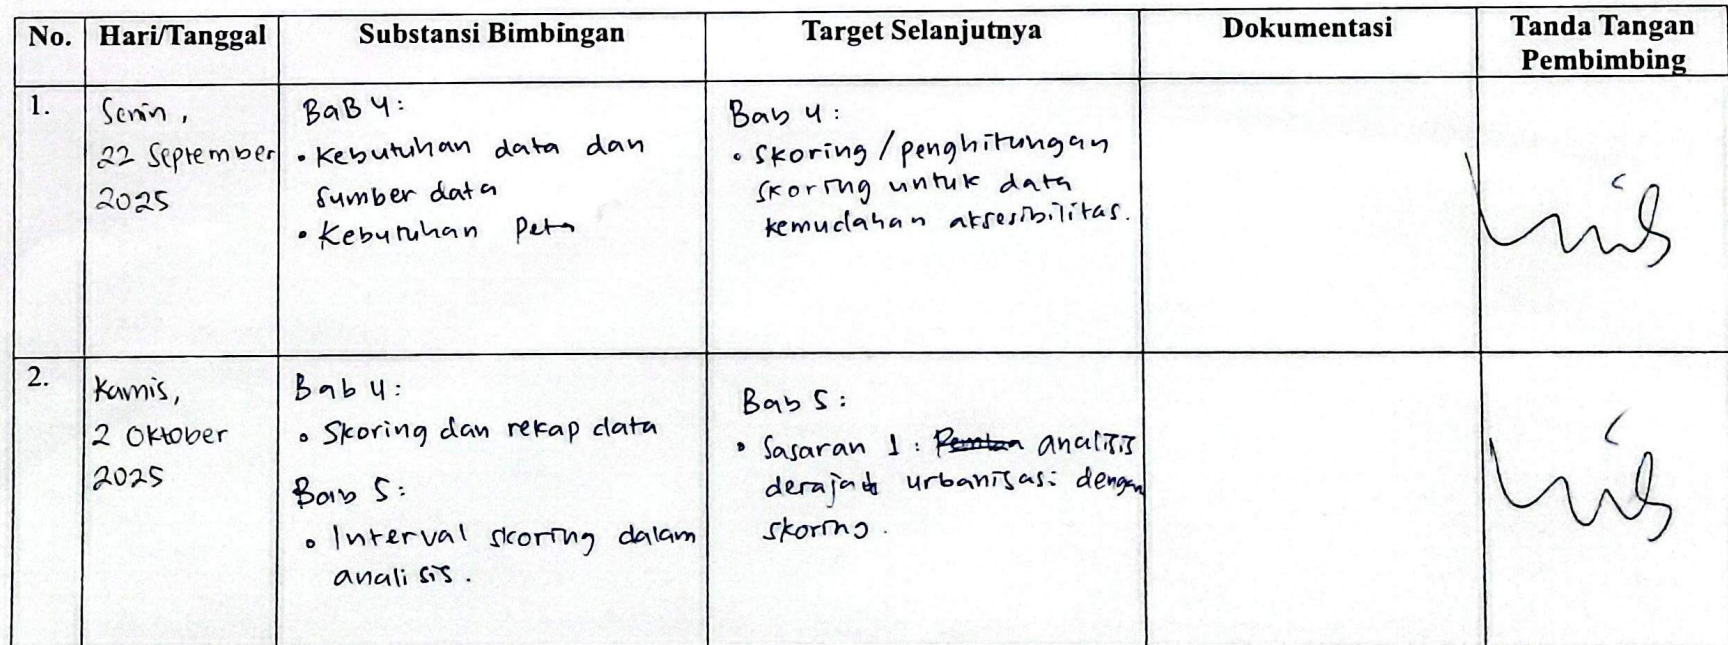 No. Hari/Tanggal Substansi Bimbingan Target Selanjutnya Dokumentasi Tanda Tangan
Pembimbing
1.
Senin,
22 September
2025
BaB 4:
• Kebutuhan data dan
sumber data
• Kebutuhan Peta
Bab 4:
• Skoring / penghitungan
skoring untuk data
kemudahan aksesibilitas.
2.
Kamis,
2 Oktober
2025
Bab 4:
• Skoring dan rekap data
Bab 5:
• Interval skoring dalam
analisis.
Bab 5:
• Sasaran 1: analisis
derajat urbanisasi dengan
skoring.